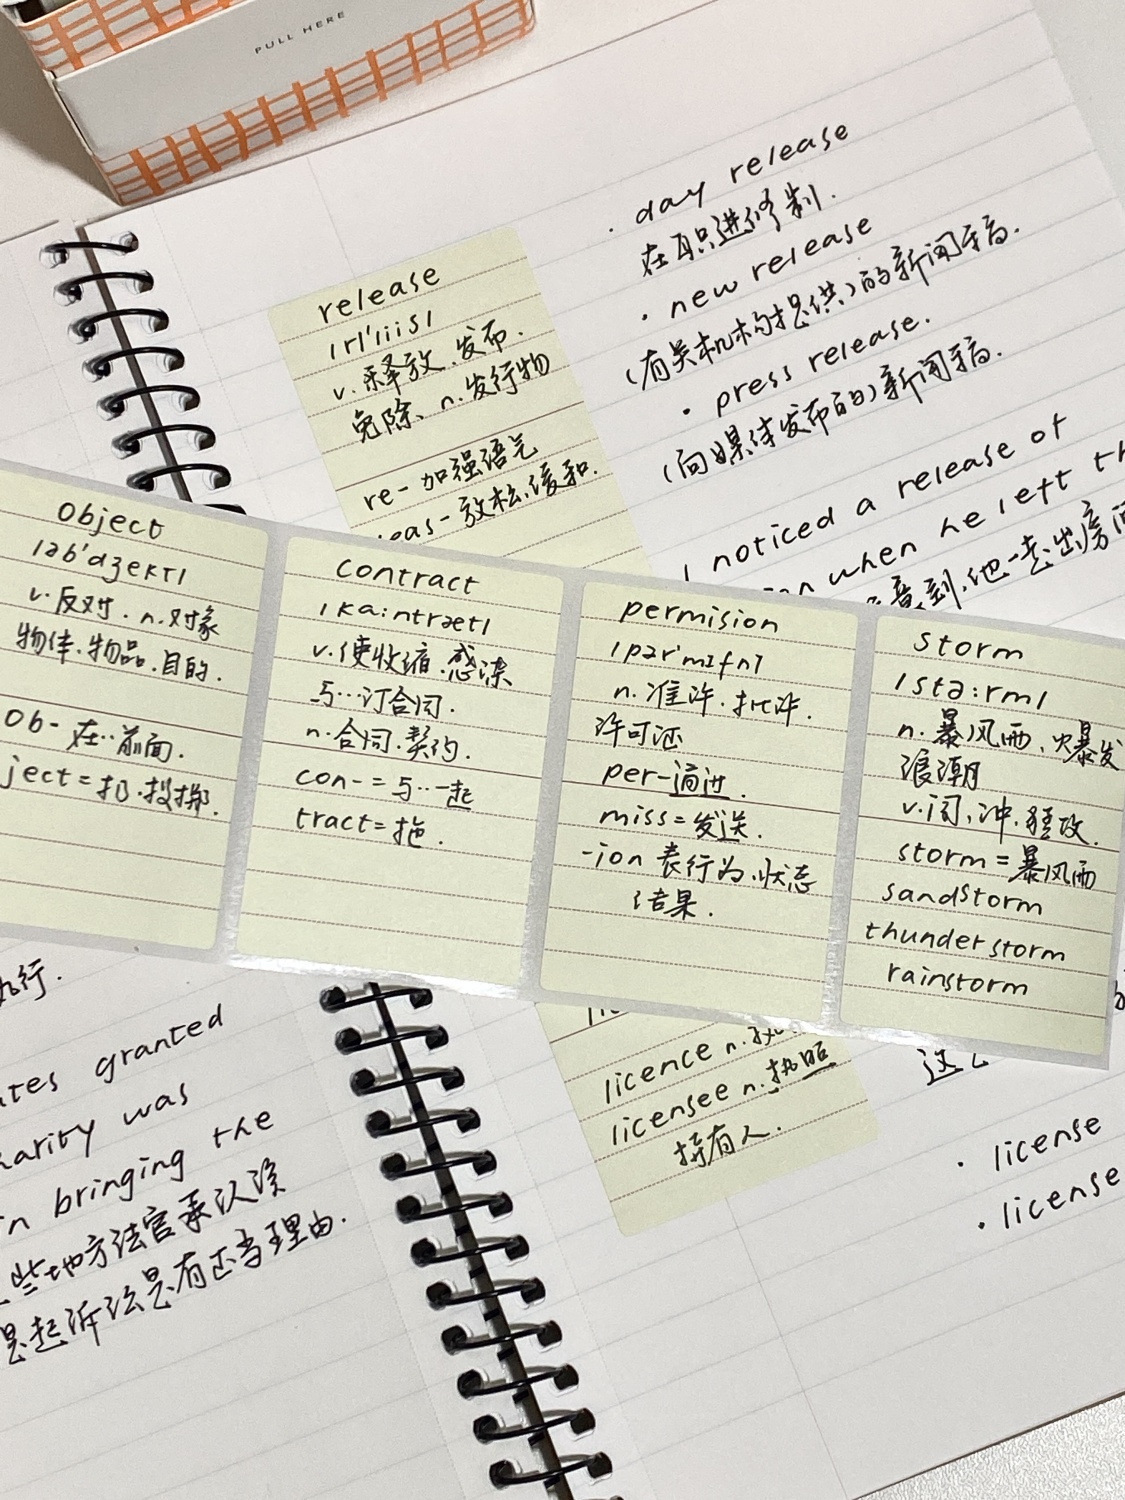 PULL HERE
· day release
在职进修制.
· new release
(有关机构提供)的新闻稿.
· press release.
(向媒体发布的)新闻稿.
I noticed a release of
when he left th
意到,他一走出房间
release
/rI'liis/
v.释放、发布.
免除、n.发行物
re-加强语气
eas-放松,缓和.
object
/əb'dʒekt/
v.反对. n.对象
物体.物品.目的.
ob-在…前面.
ject=扔.投掷.
contract
/ka:ntrækt/
v.使收缩.感染
与…订合同.
n.合同.契约.
con-=与…一起
tract=拖.
permision
/pər'mɪʃn/
n.准许.批准.
许可证
per-通过.
miss=发送.
-ion 表行为.状态
结果.
storm
/stɔ:rm/
n.暴风雨、爆发
浪潮
v.闯、冲.猛攻.
storm=暴风雨
sandstorm
thunderstorm
rainstorm
licence n.执
licensee n.执照
持有人.
这
· license
· license
执行.
ates granted
harity was
in bringing the
些地方法官承认该
是起诉讼是有正当理由.